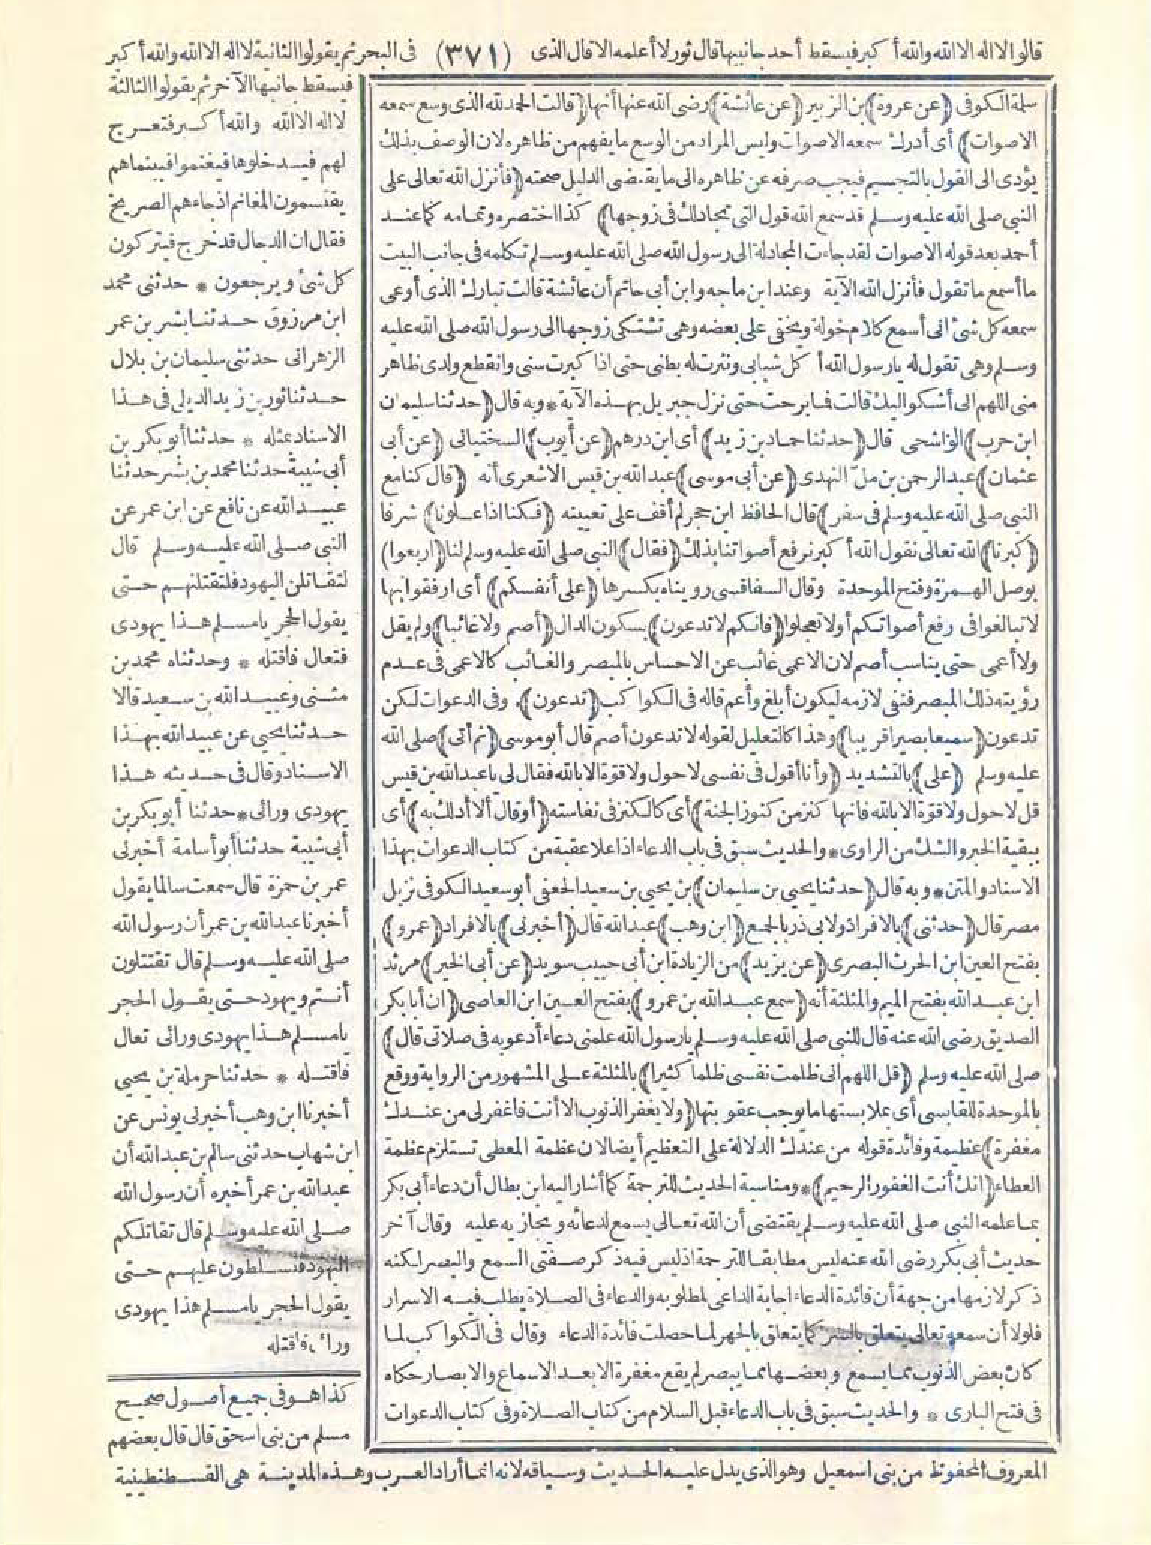 قالوا لا اله الا الله والله أكبر فيسقط أحد جانبيها قال ثور لا أعلمه الا قال الذى (٣٧١) فى البحر ثم يقولوا الثانية لا اله الا الله والله أكبر
سلمة الكوفى (عن عروة) بن الزبير (عن عائشة) رضى الله عنها أنها (قالت الحمد لله الذى وسع سمعه
الاصوات) أى أدرك سمعه الاصوات وليس المراد من الوسع ما يفهم من ظاهره لان الوصف بذلك
يؤدى الى القول بالتجسيم فيجب صرفه عن ظاهره الى ما يقتضى الدليل صحته (فأنزل الله تعالى على
النبى صلى الله عليه وسلم قد سمع الله قول التى تجادلك فى زوجها) كذا اختصره وتمامه كما عند
أحمد بعد قوله الاصوات لقد جاءت المجادلة الى رسول الله صلى الله عليه وسلم تكلمه فى جانب البيت
ما أسمع ما تقول فأنزل الله الآية وعند ابن ماجه وابن أبى حاتم أن عائشة قالت تبارك الذى أوعى
سمعه كل شئ انى أسمع كلام خولة ويخفى على بعضه وهى تشتكى زوجها الى رسول الله صلى الله عليه
وسلم وهى تقول له يا رسول الله أكل شبابى ونثرت له بطنى حتى اذا كبرت سنى وانقطع ولدى ظاهر
منى اللهم انى أشكو اليك قالت فما برحت حتى نزل جبريل بهذه الآية * وبه قال (حدثنا سليمان
ابن حرب) الواشحى قال (حدثنا حماد بن زيد) أى ابن درهم (عن أيوب) السختيانى (عن أبى
عثمان) عبد الرحمن بن ملّ النهدى (عن أبى موسى) عبد الله بن قيس الاشعرى أنه (قال كنا مع
النبى صلى الله عليه وسلم فى سفر) قال الحافظ ابن حجر لم أقف على تعيينه (فكنا اذا علونا) شرفا
(كبرنا) الله تعالى نقول الله أكبر نرفع أصواتنا بذلك (فقال) النبى صلى الله عليه وسلم لنا (اربعوا)
بوصل الهمزة وفتح الموحدة وقال السفاقسى رويناه بكسرها (على أنفسكم) أى ارفقوا بها
لا تبالغوا فى رفع أصواتكم أو لا تعجلوا (فانكم لا تدعون) بسكون الدال (أصم ولا غائبا) ولم يقل
ولا أعمى حتى يناسب أصم لان الاعمى غائب عن الاحساس بالمبصر والغائب كالاعمى فى عدم
رؤيته ذلك المبصر فنفى لازمه ليكون أبلغ وأعم قاله فى الكواكب (تدعون) وفى الدعوات لكن
تدعون (سميعا بصيرا قريبا) وهذا كالتعليل لقوله لا تدعون أصم قال أبو موسى (ثم أتى) صلى الله
عليه وسلم (على) بالتشديد (وأنا أقول فى نفسى لا حول ولا قوة الا بالله فقال لى يا عبد الله بن قيس
قل لا حول ولا قوة الا بالله فانها كنز من كنوز الجنة) أى كالكنز فى نفاسته (أو قال ألا أدلك به) أى
ببقية الخبر والشك من الراوى * والحديث سبق فى باب الدعاء اذا علا عقبة من كتاب الدعوات بهذا
الاسناد والمتن * وبه قال (حدثنا يحيى بن سليمان) بن يحيى بن سعيد الجعفى أبو سعيد الكوفى نزيل
مصر قال (حدثنى) بالافراد ولابى ذر بالجمع (ابن وهب) عبد الله قال (أخبرنى) بالافراد (عمرو)
بفتح العين ابن الحرث البصرى (عن يزيد) من الزيادة ابن أبى حبيب سويد (عن أبى الخير) مرثد
ابن عبد الله بفتح الميم والمثلثة أنه (سمع عبد الله بن عمرو) بفتح العين ابن العاصى (ان أبا بكر
الصديق رضى الله عنه قال للنبى صلى الله عليه وسلم يا رسول الله علمنى دعاء أدعو به فى صلاتى قال)
صلى الله عليه وسلم (قل اللهم انى ظلمت نفسى ظلما كثيرا) بالمثلثة على المشهور من الرواية ووقع
بالموحدة للقابسى أى بملابستها ما يوجب عقوبتها (ولا يغفر الذنوب الا أنت فاغفر لى من عندك
مغفرة) عظيمة وفائدة قوله من عندك الدلالة على التعظيم أيضا لان عظمة المعطى تستلزم عظمة
العطاء (انك أنت الغفور الرحيم) * ومناسبة الحديث للترجمة كما أشار اليه ابن بطال أن دعاء أبى بكر
بما علمه النبى صلى الله عليه وسلم يقتضى أن الله تعالى يسمع لدعائه ويجازيه عليه وقال آخر
حديث أبى بكر رضى الله عنه ليس مطابقا للترجمة اذ ليس فيه ذكر صفتى السمع والبصر لكنه
ذكر لازمها من جهة أن فائدة الدعاء اجابة الداعى لمطلوبه والدعاء فى الصلاة يطلب فيه الاسرار
فلولا أن سمعه تعالى يتعلق بالسر كما يتعلق بالجهر لما حصلت فائدة الدعاء وقال فى الكواكب لما
كان بعض الذنوب مما يسمع وبعضها مما يبصر لم يقع مغفرة الا بعد الاسماع والابصار حكاه
فى فتح البارى * والحديث سبق فى باب الدعاء قبل السلام من كتاب الصلاة وفى كتاب الدعوات
فيسقط جانبها الآخر ثم يقولوا الثالثة
لا اله الا الله والله أكبر فتفرج
لهم فيدخلوها فيغنموا فبينما هم
يقتسمون المغانم اذ جاءهم الصريخ
فقال ان الدجال قد خرج فيتركون
كل شئ ويرجعون * حدثنى محمد
ابن مرزوق حدثنا بشر بن عمر
الزهرانى حدثنى سليمان بن بلال
حدثنا ثور بن زيد الديلى فى هذا
الاسناد بمثله * حدثنا أبو بكر بن
أبى شيبة حدثنا محمد بن بشر حدثنا
عبيد الله عن نافع عن ابن عمر عن
النبى صلى الله عليه وسلم قال
لتقاتلن اليهود فلتقتلنهم حتى
يقول الحجر يا مسلم هذا يهودى
فتعال فاقتله * وحدثناه محمد بن
مثنى وعبيد الله بن سعيد قالا
حدثنا يحيى عن عبيد الله بهذا
الاسناد وقال فى حديثه هذا
يهودى ورائى * حدثنا أبو بكر بن
أبى شيبة حدثنا أبو أسامة أخبرنى
عمر بن حمزة قال سمعت سالما يقول
أخبرنا عبد الله بن عمر أن رسول الله
صلى الله عليه وسلم قال تقتتلون
أنتم ويهود حتى يقول الحجر
يا مسلم هذا يهودى ورائى تعال
فاقتله * حدثنا حرملة بن يحيى
أخبرنا ابن وهب أخبرنى يونس عن
ابن شهاب حدثنى سالم بن عبد الله أن
عبد الله بن عمر أخبره أن رسول الله
صلى الله عليه وسلم قال تقاتلكم
اليهود فتسلطون عليهم حتى
يقول الحجر يا مسلم هذا يهودى
ورائى فاقتله
كذا هو فى جميع أصول صحيح
مسلم من بنى اسحق قال قال بعضهم
المعروف المحفوظ من بنى اسمعيل وهو الذى يدل عليه الحديث وسياقه لانه انما أراد العرب وهذه المدينة هى القسطنطينية